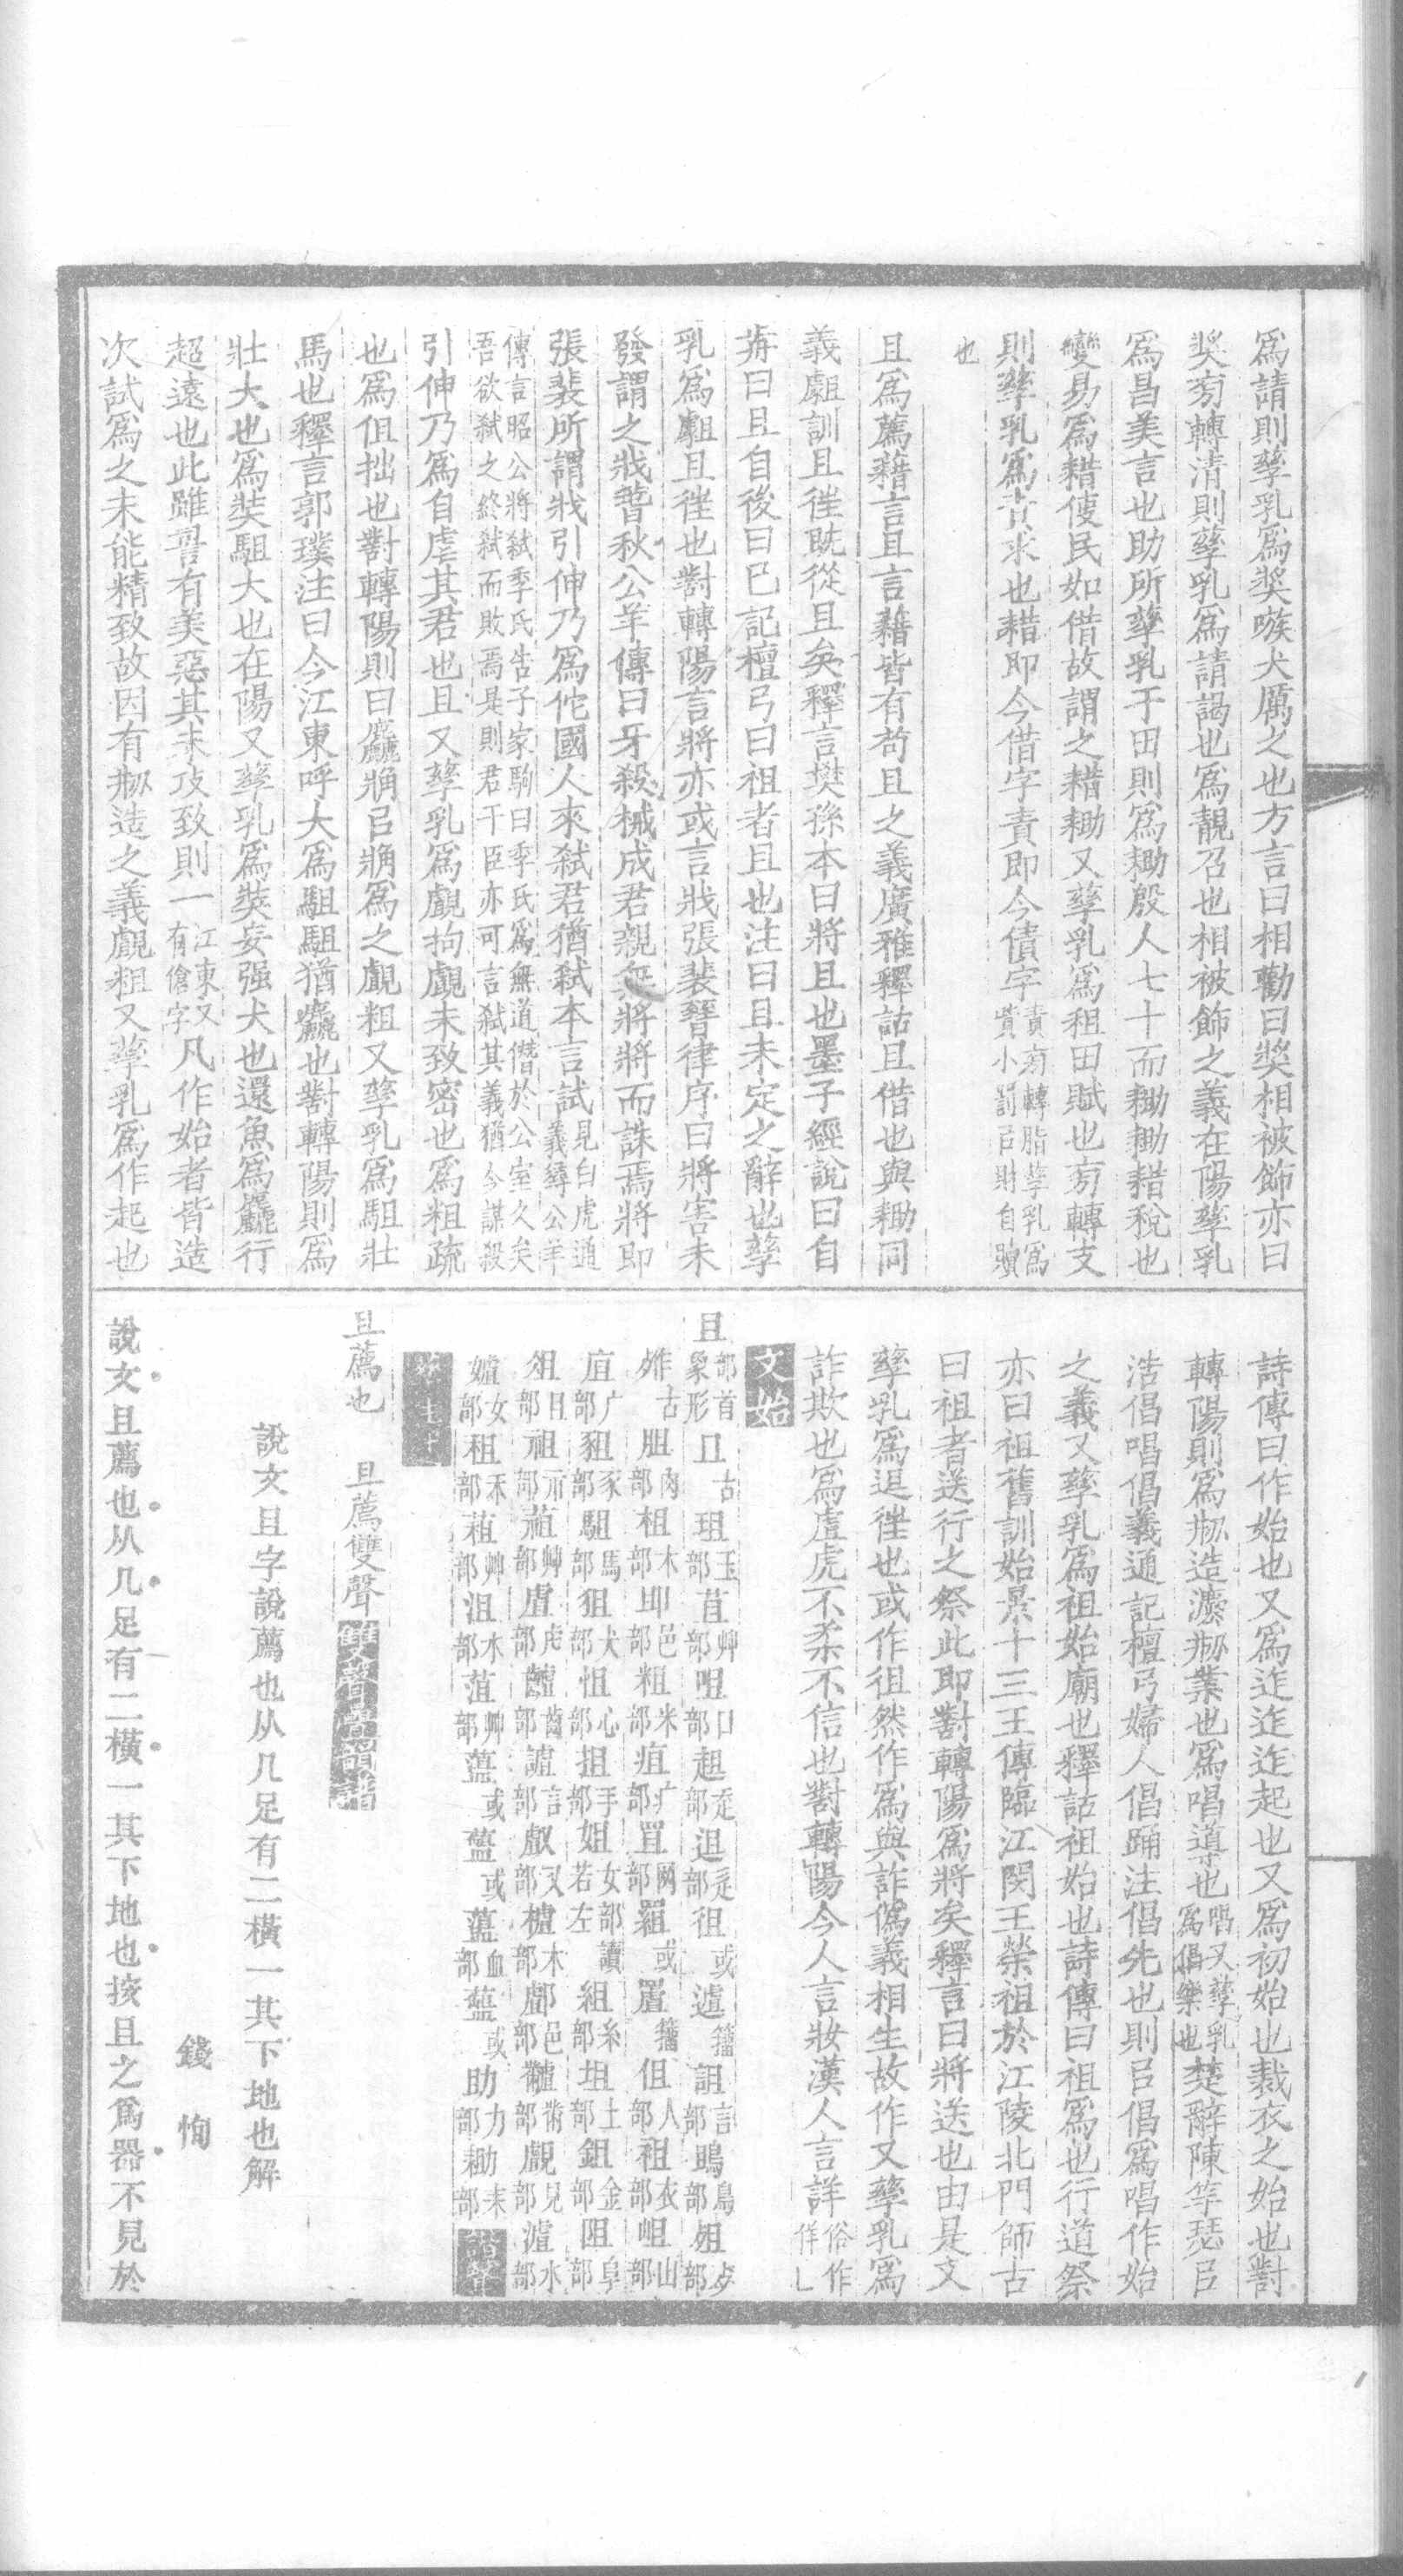 爲請則孳乳爲奬嗾犬厲之也方言曰相勸曰奬相被飾亦曰
奬旁轉清則孳乳爲請謁也爲靚召也相被飾之義在陽孳乳
爲昌美言也助所孳乳于田則爲耡殷人七十而耡耡耤稅也
變易爲耤使民如借故謂之耤耡又孳乳爲租田賦也旁轉支
則孳乳爲責求也耤即今借字責即今債字責旁轉脂孳乳爲貲小罰㠯財自贖
也
且爲薦藉言且言藉皆有苟且之義廣雅釋詁且借也與耡同
義䖒訓且往旣從且矣釋言樊孫本曰將且也墨子經說曰自
歬曰且自後曰已記檀弓曰祖者且也注曰且未定之辭也孳
乳爲䖒且往也對轉陽言將亦或言戕張裴晉律序曰將害未
發謂之戕春秋公羊傳曰牙殺械成君親無將將而誅焉將即
張裴所謂戕引伸乃爲佗國人來弒君猶弒本言試見白虎通義尋公羊
傳言昭公將弒季氏告子家駒曰季氏爲無道僭於公室久矣吾欲弒之終弒而敗焉是則君干臣亦可言弒其義猶今謀殺
引伸乃爲自虐其君也且又孳乳爲覰拘覰未致密也爲粗疏
也爲伹拙也對轉陽則曰麤㾕㠯㾕爲之覰粗又孳乳爲駔壯
馬也釋言郭璞注曰今江東呼大爲駔駔猶麤也對轉陽則爲
壯大也爲奘駔大也在陽又孳乳爲奘妄强犬也還魚爲麤行
超遠也此雖言有美惡其未攻致則一江東又有傖字凡作始者皆造
次試爲之未能精致故因有刱造之義覰粗又孳乳爲作起也
詩傳曰作始也又爲迮迮迮起也又爲初始也裁衣之始也對
轉陽則爲刱造灋刱業也爲唱導也唱又孳乳爲倡樂也楚辭陳竽瑟㠯
浩倡唱倡義通記檀弓婦人倡踊注倡先也則㠯倡爲唱作始
之義又孳乳爲祖始廟也釋詁祖始也詩傳曰祖爲也行道祭
亦曰祖舊訓始景十三王傳臨江閔王榮祖於江陵北門師古
曰祖者送行之祭此即對轉陽爲將矣釋言曰將送也由是又
孳乳爲退往也或作徂然作爲與詐僞義相生故作又孳乳爲
詐欺也爲虘虎不柔不信也對轉陽今人言妝漢人言詳俗作佯㇄
文始
且部首象形 古 珇玉部 苴艸部 咀口部 趄走部 退辵部 徂或 籒 詛言部 鴡鳥部 殂歺部
古 胆肉部 柤木部 䢸邑部 粗米部 疽疒部 罝网部 或 籒 伹人部 袓衣部 岨山部
㡹广部 豠豕部 駔馬部 狙犬部 怚心部 抯手部 姐女部讀若左 組糸部 坥土部 鉏金部 阻阜部
俎且部 祖示部 菹艸部 虘虍部 齇齒部 謯言部 叡又部 樝木部 䣜邑部 黼黹部 覰見部 滤水部
嫭女部 租禾部 蒩艸部 沮水部 菹艸部 蕰或 藍或 血部 或 助力部 耡耒部 諧聲
且薦也 且薦雙聲 雙聲疊韻譜
說文且字說薦也从几足有二橫一其下地也解
錢恂
說文且薦也从几足有二橫一其下地也按且之爲器不見於